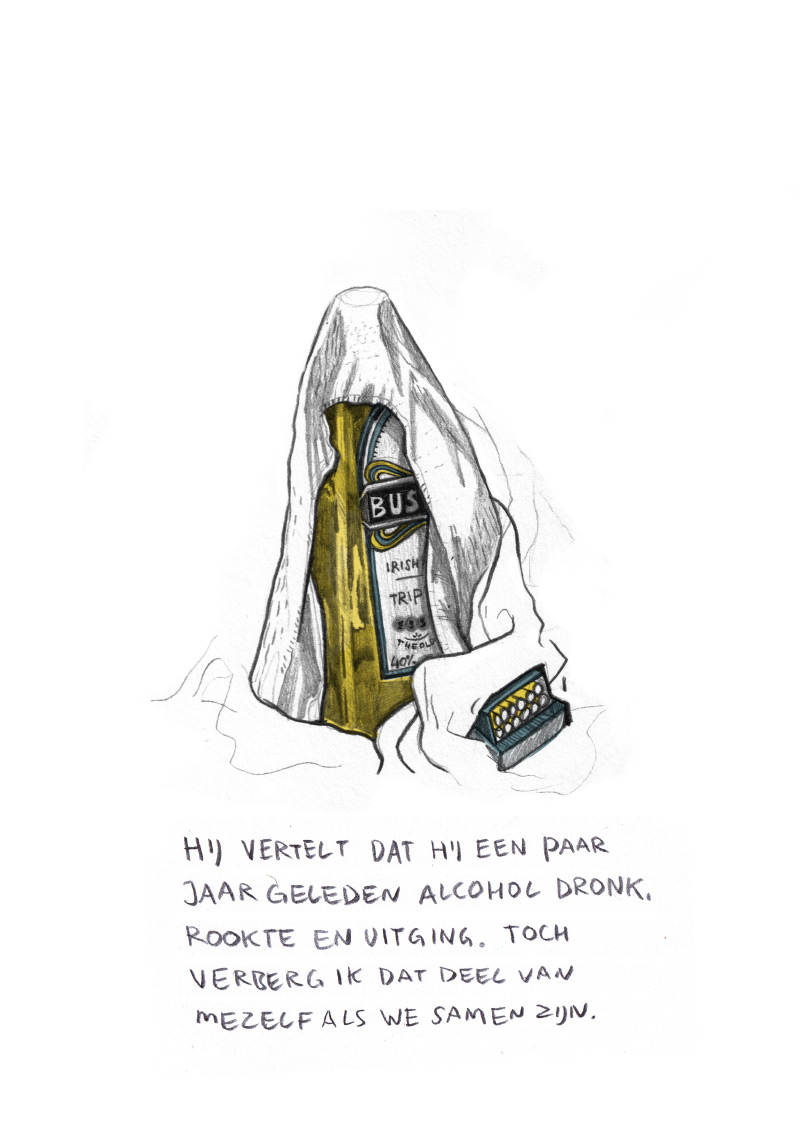 BUS
IRISH
TRIP
THE OLD
40%
HIJ VERTELT DAT HIJ EEN PAAR
JAAR GELEDEN ALCOHOL DRONK,
ROOKTE EN UITGING. TOCH
VERBERG IK DAT DEEL VAN
MEZELF ALS WE SAMEN ZIJN.